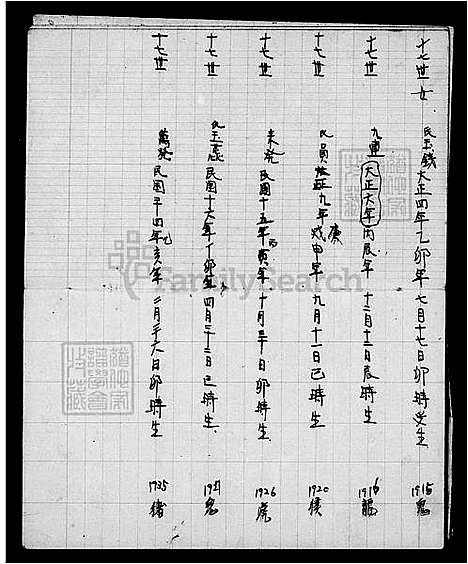 十七世女 民玉錢 大正四年乙卯年 七月十七日卯時受生 1915 兔
十七世 九重 大正六年 丙辰年 十二月十二日辰時生 1916 龍
十七世 民員 九年 庚 戊申年 九月十一日巳時生 1920 猴
十七世 来発 民國十五年 丙寅年 十月三十日卯時生 1926 虎
十七世 民玉 民國十六年丁卯年四月三十二日巳時生 兔
十七世 萬発 民國二十四年乙亥年二月二十六日卯時生 1935 猪
FamilySearch